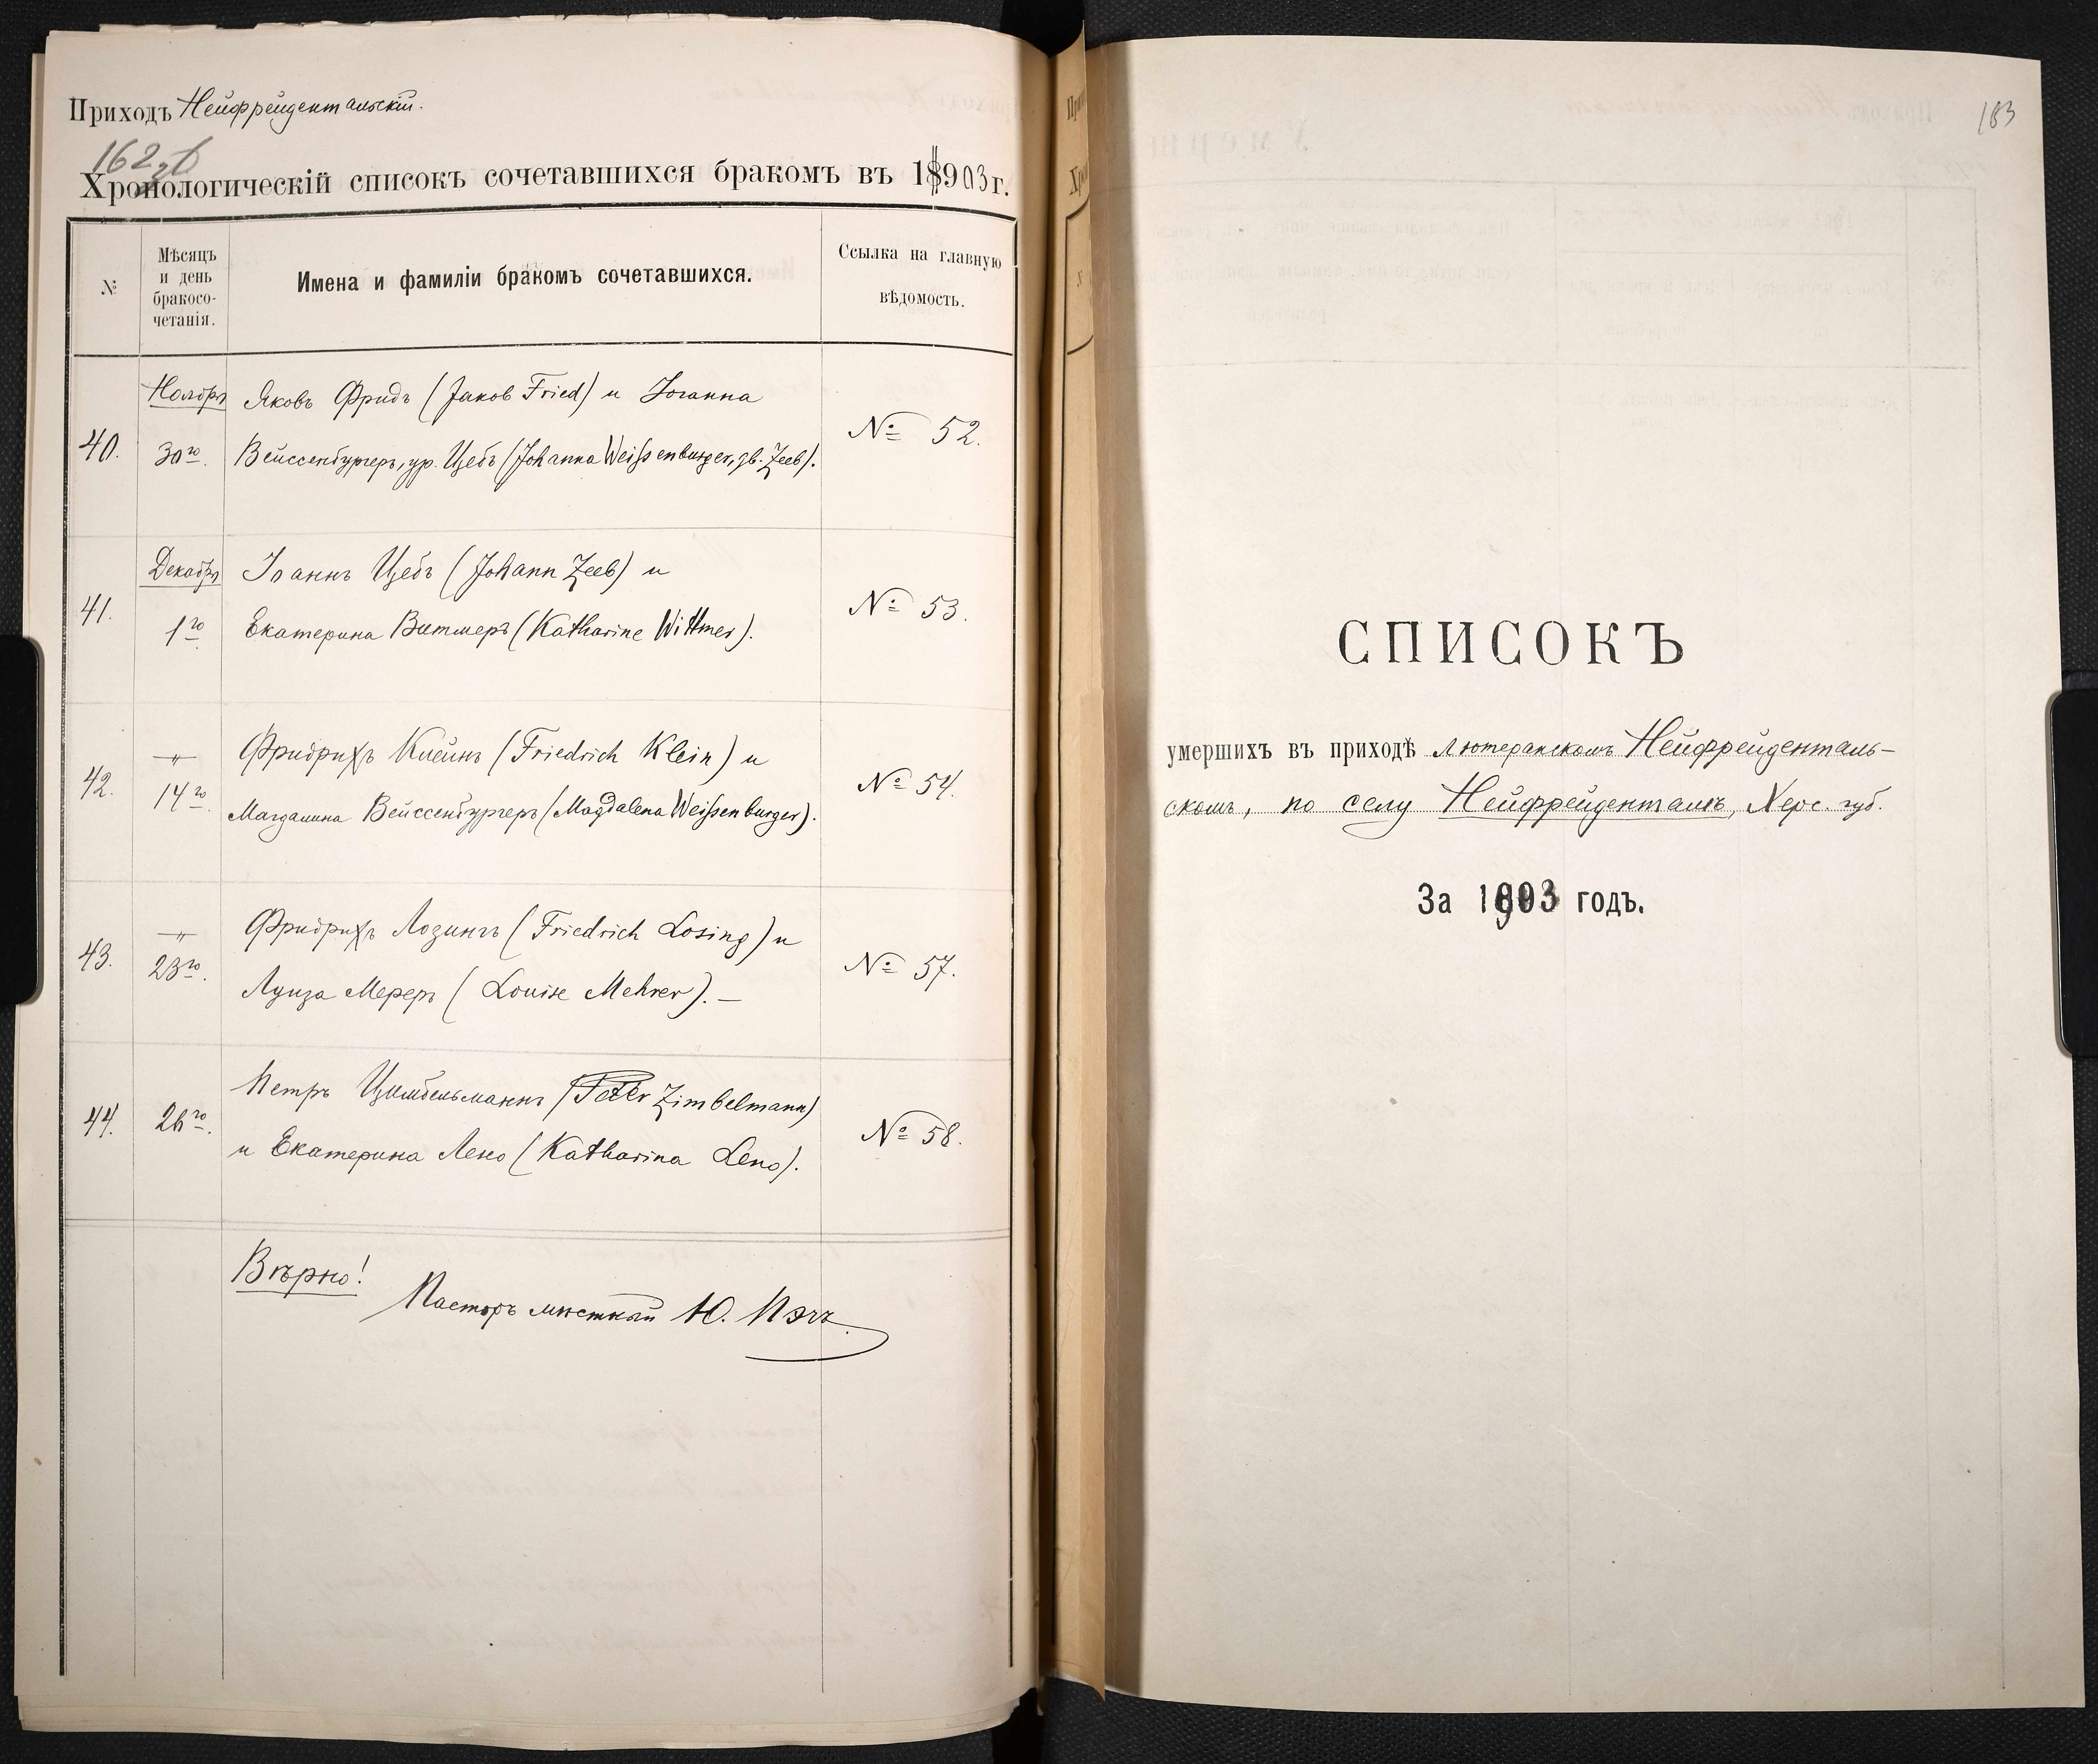 Приходъ Нейфрейдентальскій.
162
Хронологическій списокъ сочетавшихся бракомъ въ 1903 г.
№
Мѣсяцъ
и день
бракосо-
четанія.
Имена и фамиліи бракомъ сочетавшихся.
Ссылка на главную
вѣдомость.
40.
Ноября
30го.
Яковъ Фридъ (Jakob Fried) и Іоганна
Вейссенбургеръ, ур. Цебъ (Johanna Weißenburger, gb. Zeeb).
№ 52.
41.
Декабря
1го.
Іоаннъ Цебъ (Johann Zeeb) и
Екатерина Витмеръ (Katharine Wittmer).
№ 53.
42.
—„—
14го.
Фридрихъ Клейнъ (Friedrich Klein) и
Магдалина Вейссенбургеръ (Magdalena Weißenburger).
№ 54.
43.
—„—
23го.
Фридрихъ Лозингъ (Friedrich Losing) и
Луиза Мереръ (Louise Mehrer). —
№ 57.
44.
26го.
Петръ Цимбельманнъ (Peter Zimbelmann)
и Екатерина Лено (Katharina Leno).
№ 58.
Вѣрно!
Пасторъ мѣстный Ю. Пэчъ
183
СПИСОКЪ
умершихъ въ приходѣ лютеранскомъ Нейфрейденталь-
скомъ, по селу Нейфрейденталь, Херс. губ.
За 1903 годъ.